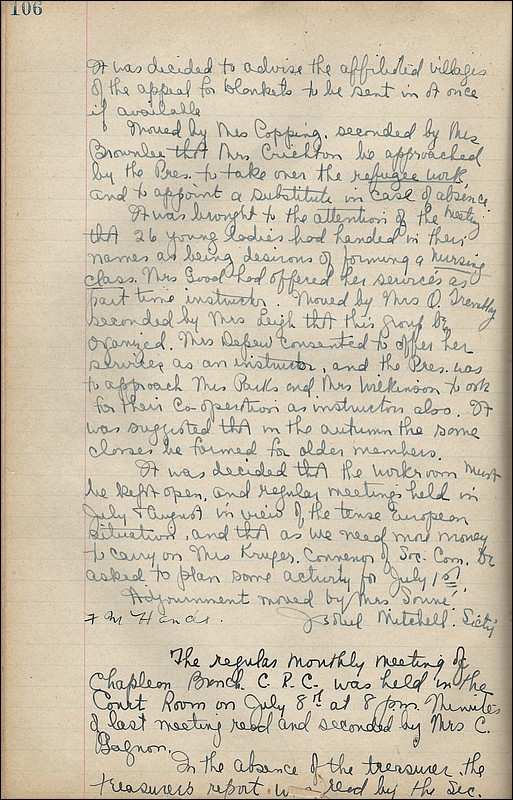 106
It was decided to advise the affiliated villages
of the appeal for blankets to be sent in at once
if available
Moved by Mrs Copping. seconded by Mrs
Brownlee that Mrs. Crichton be approached
by the Pres. to take over the refugee work,
and to appoint a substitute in case of absence.
It was brought to the attention of the meeting
that 26 young ladies had handed in their
names as being desirous of forming a nursing
class. Mrs Good had offered her services as
part time instructor. Moved by Mrs O. Tremblay
seconded by Mrs Leigh that this group be
organized. Mrs Depew consented to offer her
services as an instructor, and the Pres. was
to approach Mrs Parks and Mrs Wilkinson to ask
for their Co-operation as instructors also. It
was suggested that in the autumn the same
classes be formed for older members.
It was decided that the workroom must
be kept open, and regular meetings held in
July & August in view of the tense European
situation, and that as we need more money
to carry on Mrs Kruger. Convenor of Soc. Com. be
asked to plan some activity for July 1st.
Adjournment moved by Mrs
Mitchell. Sect'y
The regular monthly meeting of
Chapleau Branch C. R. C. was held in the
Court Room on July 8th at 8 p.m. Minutes
of last meeting read and seconded by Mrs C.
Gagnon.
In the absence of the treasurer, the
treasurer's report read by the Sec.